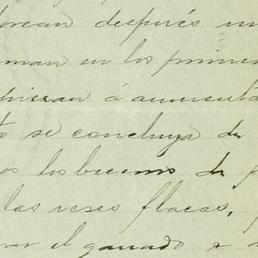 orean despues un
man en los primer
pieran á aumenta
to se concluya de
os los becerros de
las reses flacas,
rar el ganado a